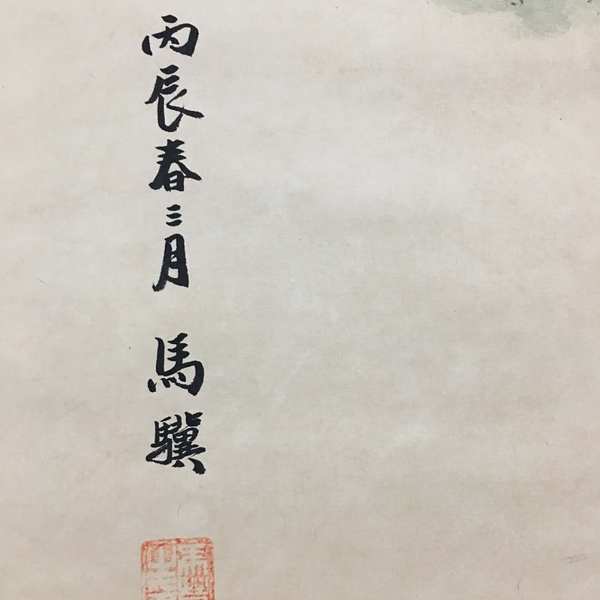 丙辰春三月 馬驥